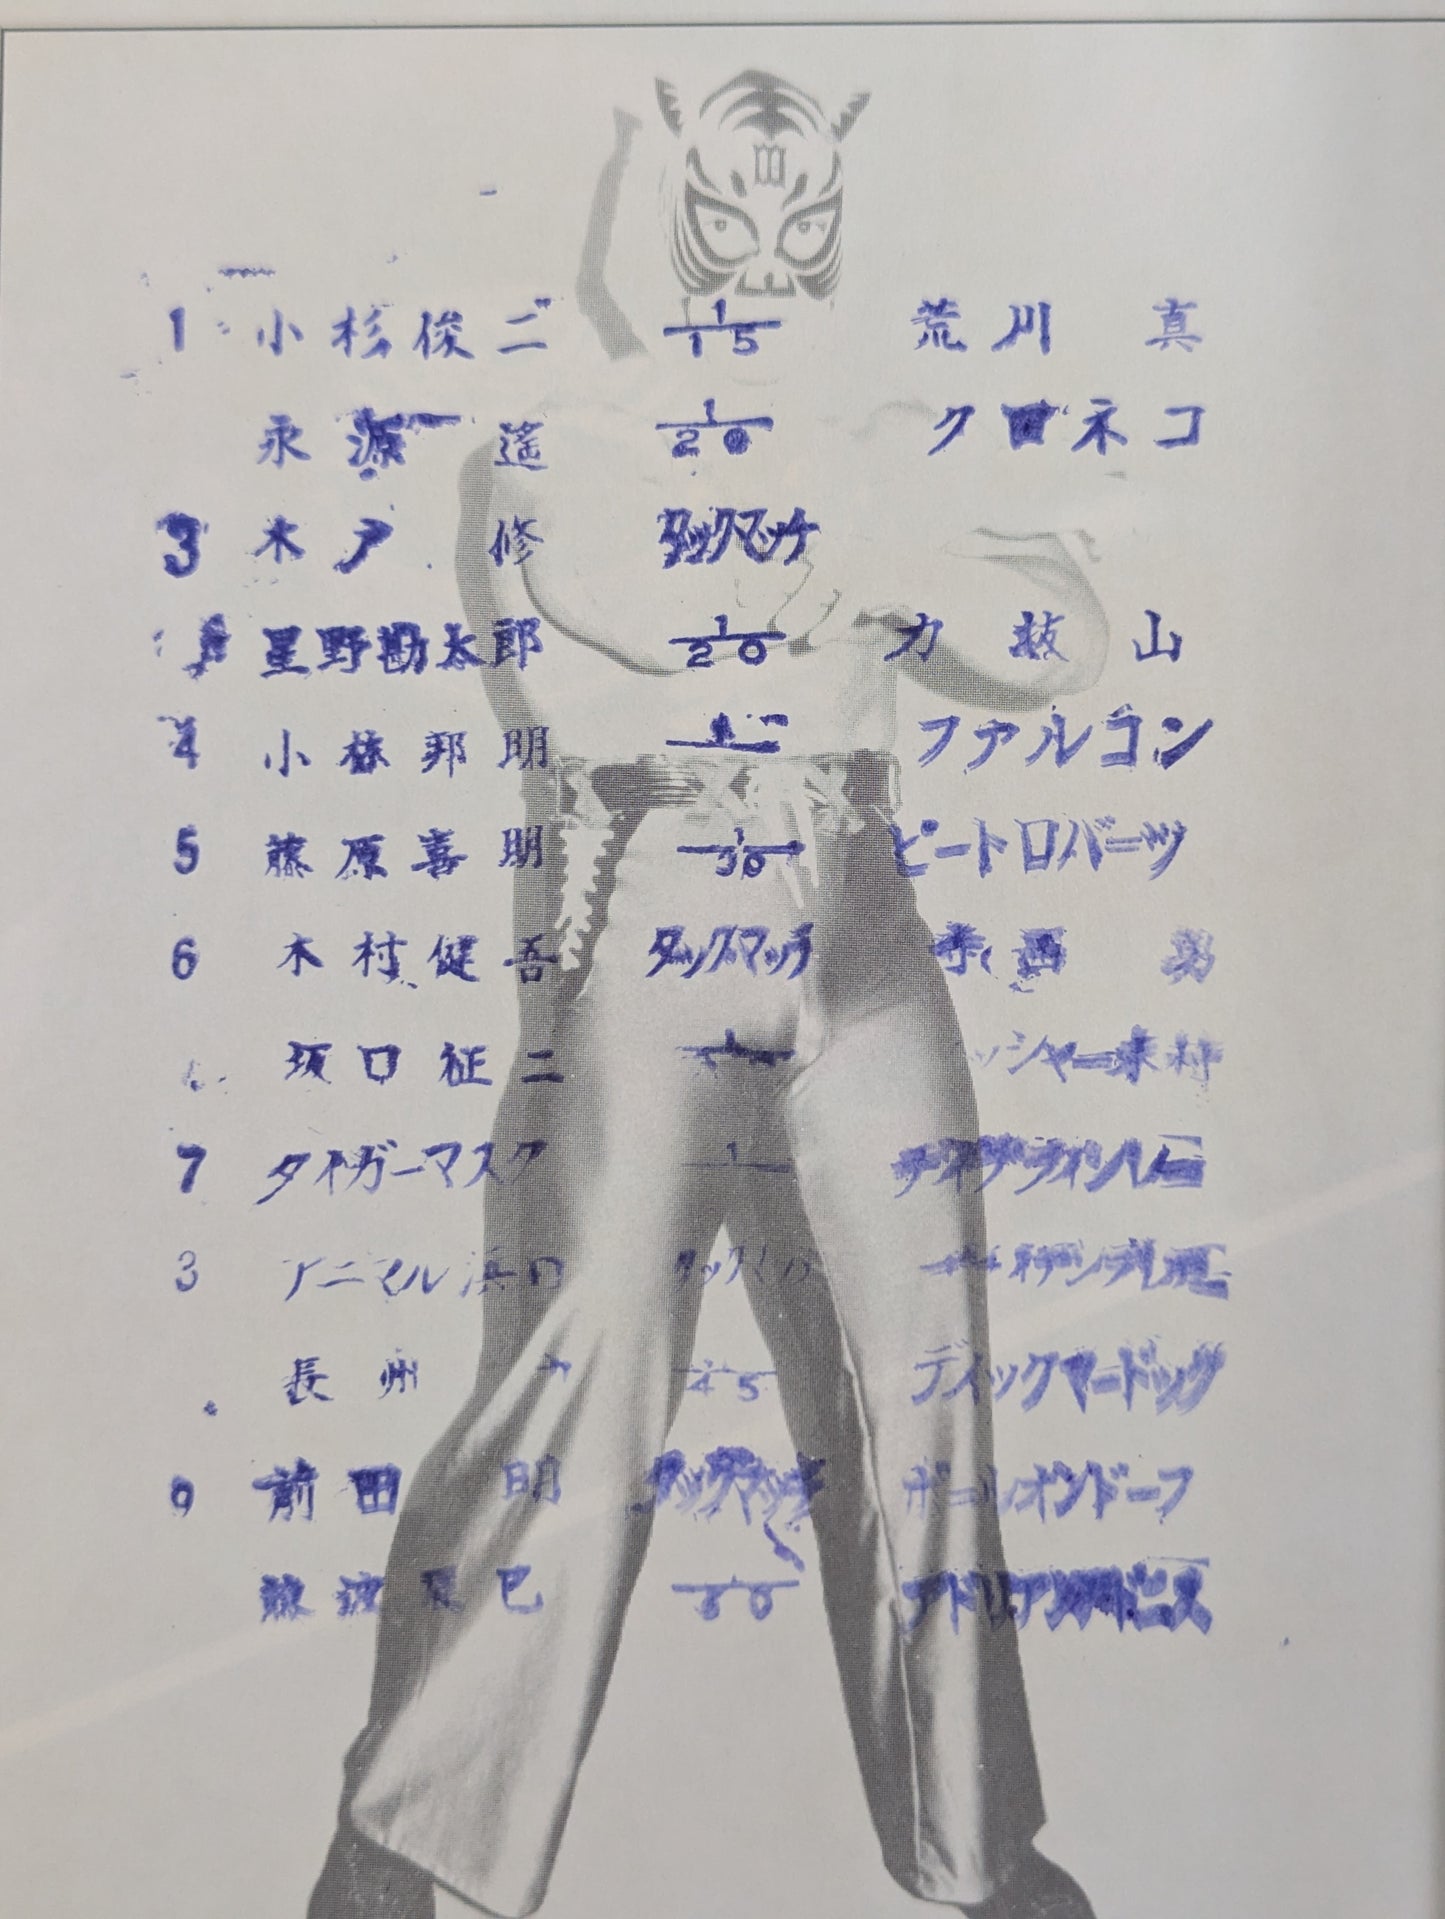 1 小杉俊二 1/15 荒川 真
永源 遙 1/20 クロネコ
3 木戸 修 タッグマッチ
星野勘太郎 1/20 力抜山
4 小林邦明 1 ファルコン
5 藤原喜明 1/30 ピートロバーツ
6 木村健吾 タッグマッチ 寺西 勇
坂口征二 1 ッシャー木村
7 タイガーマスク 1
3 アニマル浜口
長州 力 1/45 ディックマードック
9 前田 明 タッグマッチ ポールオンドーフ
藤波辰巳 1/60 アドリアンアドニス